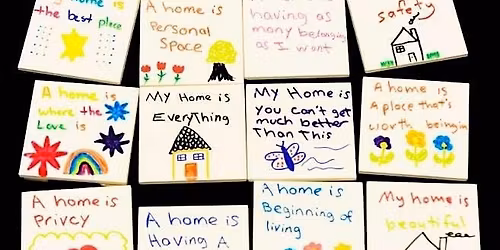 home is
the best place
A home is
Personal
Space
having as
many belongings
as I want
safety
A home is
where the
Love is
My Home is
EveryThing
My Home is
you can't get
much better
Than This
A home is
A place that's
worth being in
A home is
Privcy
A home is
Having A
A home is
Beginning of
living
My home is
beautiful